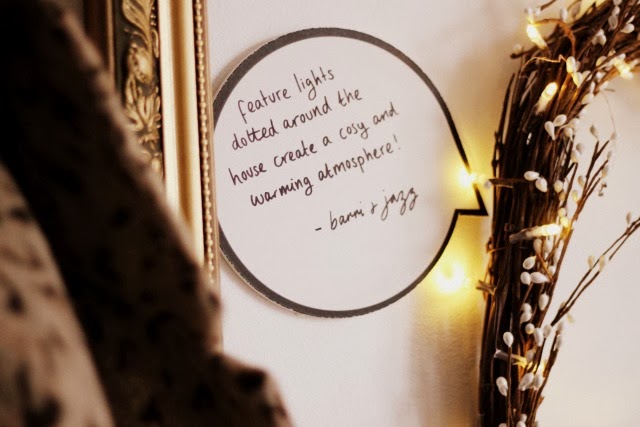 feature lights
dotted around the
house create a cosy and
warming atmosphere!
- barri & jazz